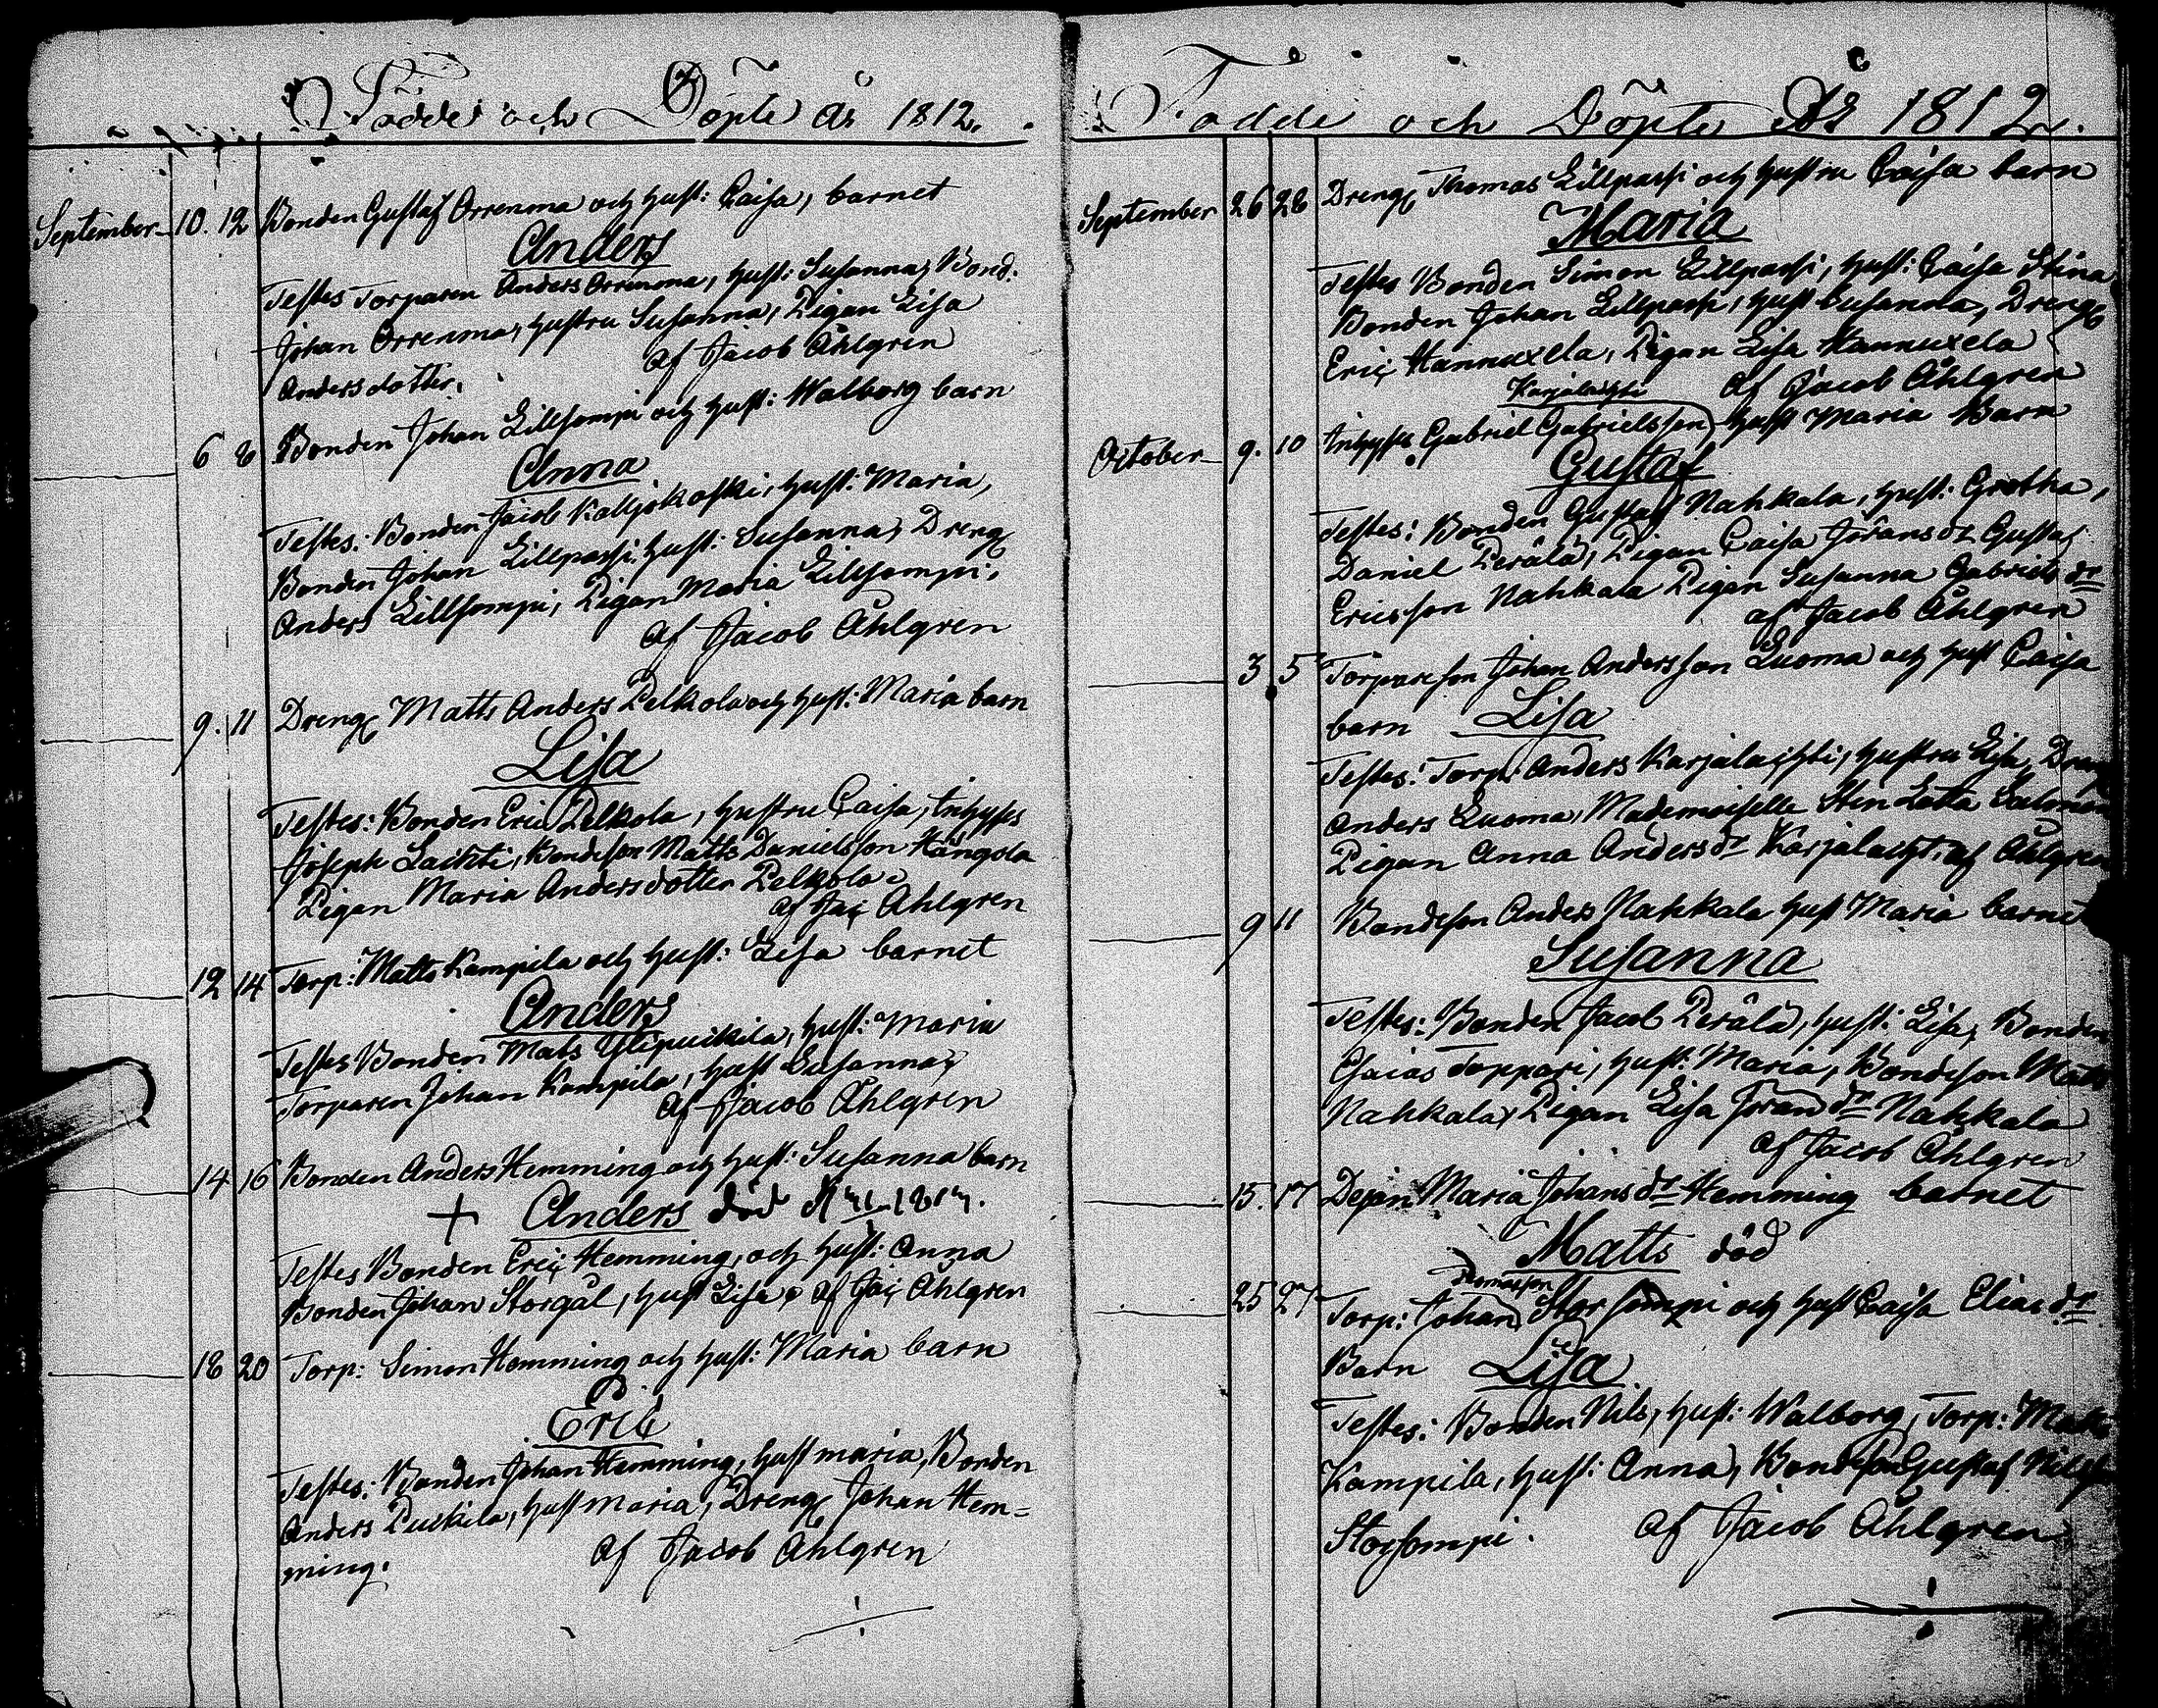 Födde och Döpte år 1812.
September 10. 12 Bonden Gustaf Orrenma och hust: Caisa, barnet
Anders
Testes Torparen Anders Orrenma, hust: Susanna, Bond:
Johan Orrenma, hustru Susanna, Pigan Lisa
Andersdotter. af Jacob Åhlgren
6 8 Bonden Johan Lillsompi och hust: Walborg barn
Anna
Testes: Bonden Jacob Kalljokoski, hust: Maria,
Bonden Johan Lillpassi hust: Susanna, Dreng
Anders Lillsompi, Pigan Maria Lillsompi.
af Jacob Åhlgren
9. 11 Dreng Matts Anders Pelkola och hust: Maria barn
Lisa
Testes: Bonden Eric Pelkola, hustru Caisa, Inhyses
Joseph Laihti, Bondeson Matts Danielsson Hångola
Pigan Maria Andersdotter Pelkola
af Jac Åhlgren
12 14 Torp: Matts Kampila och hust: Lisa barnet
Anders
Testes Bonden Mats Ylipuikila, hust: Maria
Torparen Johan Kampila, hust Susanna,
af Jacob Åhlgren
14 16 Bonden Anders Hemming och hust: Susanna barn
+ Anders död
Testes Bonden Eric Hemming, och hust: Anna
Bonden Johan Storgål, hust Lisa, af Jac Åhlgren
18 20 Torp: Simon Hemming och hust: Maria barn
Eric
Testes: Bonden Johan Hemming, hust maria, Bonden
Anders Puikila, hust maria, Dreng Johan Hem=
ming. af Jacob Åhlgren
Födde och Döpte År 1812.
September 26 28 Dreng Thomas Lillpassi och hustru Caisa barn
Maria
Testes Bonden Simon Lillpassi, hust: Caisa Stina
Bonden Johan Lillpassi, hust Susanna, Dreng
Eric Hannuxela, Pigan Lisa Hannuxela
af Jacob Åhlgren
Karjalachti
October 9. 10 Inhyses Gabriel Gabrielsson, hust Maria Barn
Gustaf
Testes: Bonden Gustaf Nahkala, hust: Gretha,
Daniel Perälä, Pigan Caisa Jöransdr Gustaf
Ericsson Nahkala Pigan Susanna Gabrielsdr
af Jacob Åhlgren
3 5 Torpareson Johan Andersson Luoma och hust Caisa
barn Lisa
Testes: Torp: Anders Karjalachti, hustru Lisa, Dreng
Anders Luoma, Mademoiselle Sten Lotta
Pigan Anna Andersdr Karjalacht. af Åhlgren
9 11 Bondeson Anders Nahkala hust Maria barnet
Susanna
Testes: Bonden Jacob Perälä, hust: Lisa, Bonden
Esaias Torppari, hust: Maria, Bondeson Mats
Nahkala, Pigan Lisa Jörandr Nahkala
af Jacob Åhlgren
15. 17 Dejan Maria Johansdr Hemming barnet
Matts död
Thomasson
25 27 Torp: Johan Storsompi och hust Caisa Eliasdr
Barn Lisa
Testes: Bonden Nils, hust: Walborg, Torp: Mats
Kampila, hust: Anna, Bondeson Gustaf Nilss
Storsompi. af Jacob Åhlgren